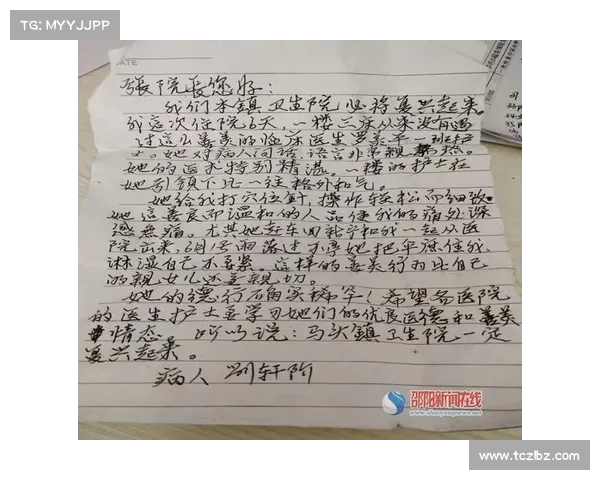 TG: MYYJJPP
DATE
张院長您好：
我们本鎮卫生院必将复兴起来
我這次住院6天，一楼三床从来没有遇
过這么善美的临床医生罗 一班护
士。她对病人问话，语言非常親热。
她的医术特别精湛。一楼的护士在
她引领下比一往格外和气。
她给我打穴位針，操作轻松而细致。
她這善良而温和的人品使我的痛处深
感無痛。尤其她赶车回 和我一起从医
院出来，6月1号雨落过不停她把伞 住我
淋湿自己不要紧。這样的善美行为比自己
的親女儿还要親切。
她的德行 确实稀罕！希望各医院
的医生护士要学习她们的优良医德和善美
情态 所以说：马头鎮卫生院一定
复兴起来。
病人 刘轩阶
邵阳新闻在线
www.shaoyangnews.net
www.tczlbz.com